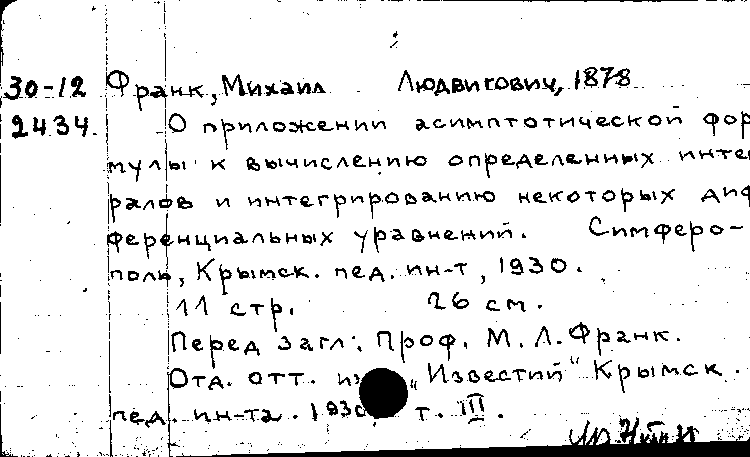 30-12 Франк, Михаил Людвигович, 1878
2434. О приложении асимптотической фор
мулы к вычислению определенных инте
ралов и интегрированию некоторых диф
ференциальных уравнений. Симферо-
поль, Крымск. пед. ин-т, 1930.
11 стр. 26 см.
Перед загл: Проф. М. Л. Франк.
Отд. отт. из „Известий" Крымск.
пед. ин-та. 1930 т. III.